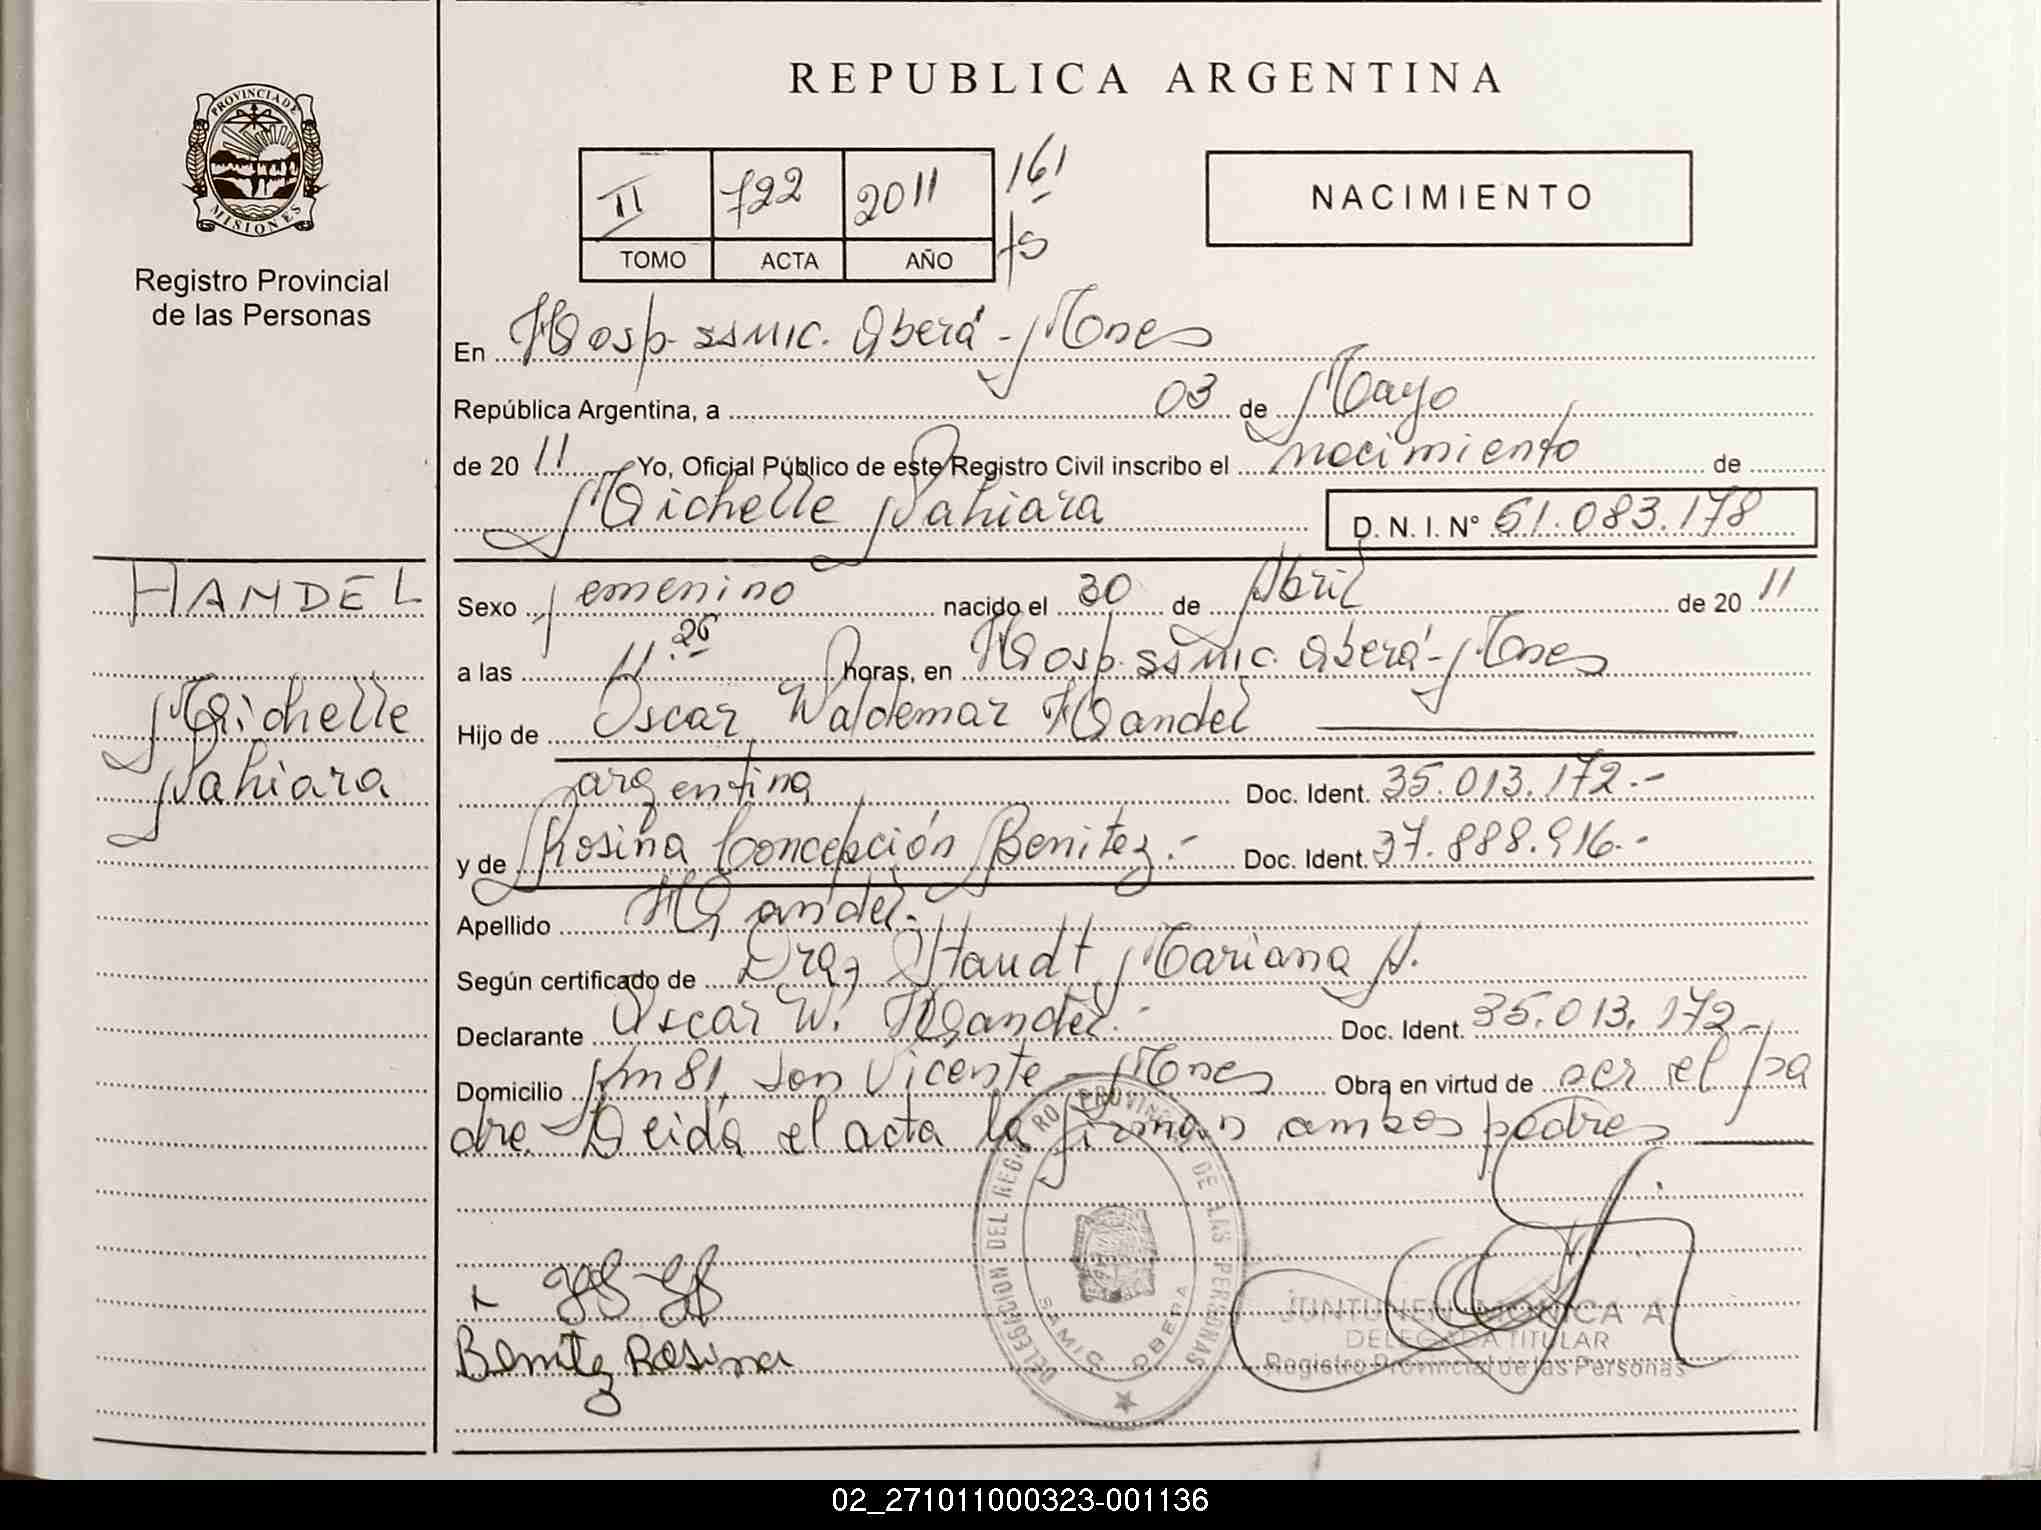 PROVINCIA DE
MISIONES
Registro Provincial
de las Personas
HANDEL
Michelle
Nahiara
REPUBLICA ARGENTINA
II 722 2011 161
TOMO ACTA AÑO fs
NACIMIENTO
En Hosp. SAMIC. Oberá - Mnes
República Argentina, a 03 de Mayo
de 20 11 Yo, Oficial Público de este Registro Civil inscribo el nacimiento de
Michelle Nahiara D. N. I. N° 51.083.178
Sexo femenino nacido el 30 de Abril de 20 11
a las 11.26 horas, en Hosp. SAMIC. Oberá - Mnes
Hijo de Oscar Waldemar Handel
argentina Doc. Ident. 35.013.172.-
y de Rosina Concepción Benitez.- Doc. Ident. 37.888.916.-
Apellido Handel.-
Según certificado de Dra, Staudt Mariana A.
Declarante Oscar W. Handel.- Doc. Ident. 35.013.172.-
Domicilio Km 81, San Vicente - Mnes Obra en virtud de ser el pa
dre. Leida el acta la firman ambos padres
DELEGACION DEL REGISTRO PROVINCIAL DE LAS PERSONAS
SAMIC OBERA
Benitez Rosina
JUNTUNEN MONICA A
DELEGADA TITULAR
Registro Provincial de las Personas
02_271011000323-001136